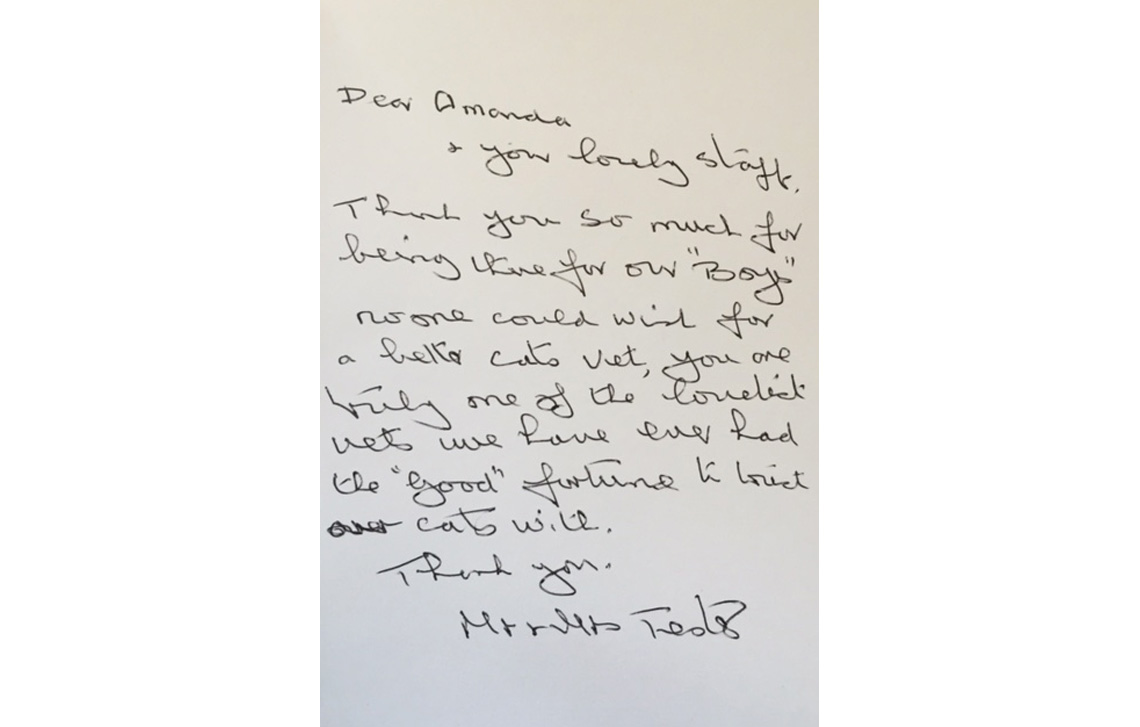 Dear Amanda
+ your lovely staff.
Thank you so much for
being there for our "Boys"
no one could wish for
a better cats vet, you are
truly one of the loveliest
vets we have ever had
the "good" fortune to trust
our cats with.
Thank you.
Mr + Mrs